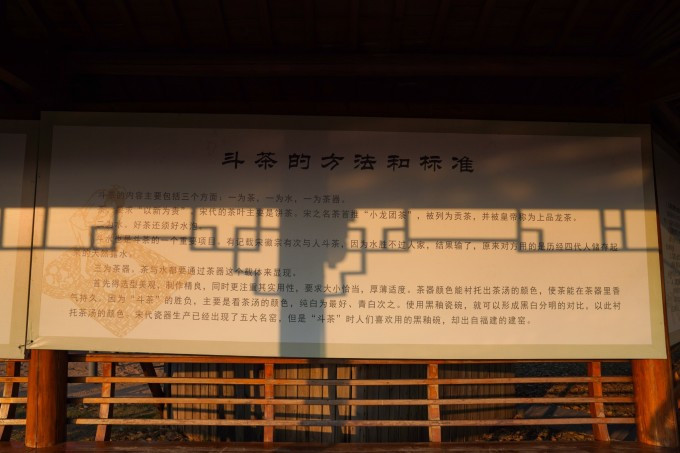 斗茶的方法和标准
斗茶的内容主要包括三个方面：一为茶，一为水，一为茶器。
“以新为贵”，宋代的茶叶主要是饼茶。宋之名茶首推“小龙团茶”，被列为贡茶，并被皇帝称为上品龙茶。
水，好茶还须好水泡。
斗茶的一个重要项目。有记载宋徽宗有次与人斗茶，因为水胜不过人家，结果输了，原来对方用的是历经四代人储存起
三为茶器，茶与水都要通过茶器这个载体来显现。
首先得造型美观，制作精良，同时更注重其实用性，要求大小恰当，厚薄适度。茶器颜色能衬托出茶汤的颜色，使茶能在茶器里香
气持久。因为“斗茶”的胜负，主要是看茶汤的颜色，纯白为最好，青白次之。使用黑釉瓷碗，就可以形成黑白分明的对比，以此衬
托茶汤的颜色。宋代瓷器生产已经出现了五大名窑，但是“斗茶”时人们喜欢用的黑釉碗，却出自福建的建窑。